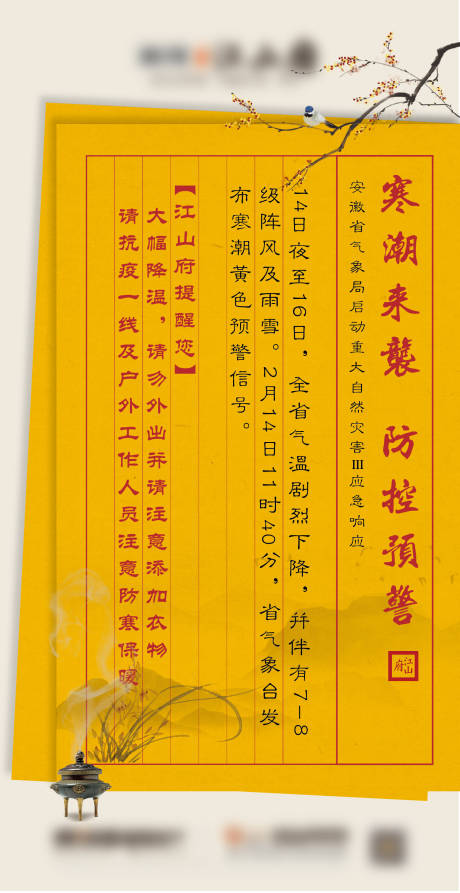 寒潮来襲 防控預警
安徽省气象局启动重大自然灾害Ⅲ应急响应
14日夜至16日，全省气溫剧烈下降，并伴有7—8
级阵风及雨雪。2月14日11时40分，省气象台发
布寒潮黄色预警信号。
【江山府提醒您】
大幅降温，请勿外出并请注意添加衣物
请抗疫一线及户外工作人员注意防寒保暖
江山府